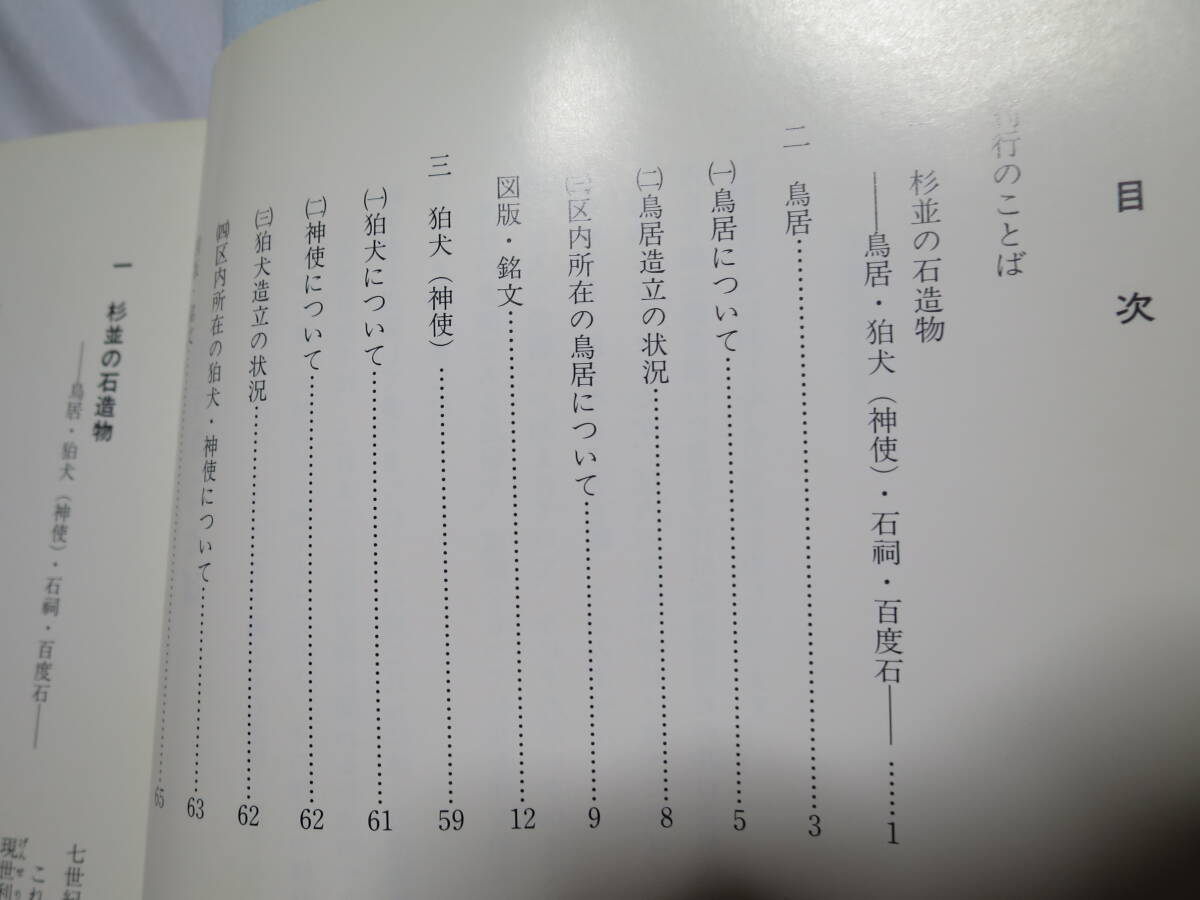 目次
刊行のことば
一 杉並の石造物
――鳥居・狛犬(神使)・石祠・百度石―― ……1
二 鳥居……3
㈠鳥居について……5
㈡鳥居造立の状況……8
㈢区内所在の鳥居について……9
図版・銘文……12
三 狛犬(神使)……59
㈠狛犬について……61
㈡神使について……62
㈢狛犬造立の状況……62
㈣区内所在の狛犬・神使について……63
……65
一 杉並の石造物
――鳥居・狛犬(神使)・石祠・百度石――
七世紀
これ
現世利
げんせり